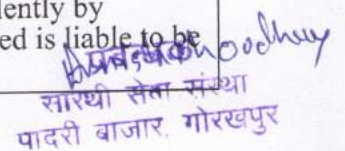 lently by
ed is liable to be
Choodhury
सारथी सेवा संस्था
पादरी बाजार, गोरखपुर